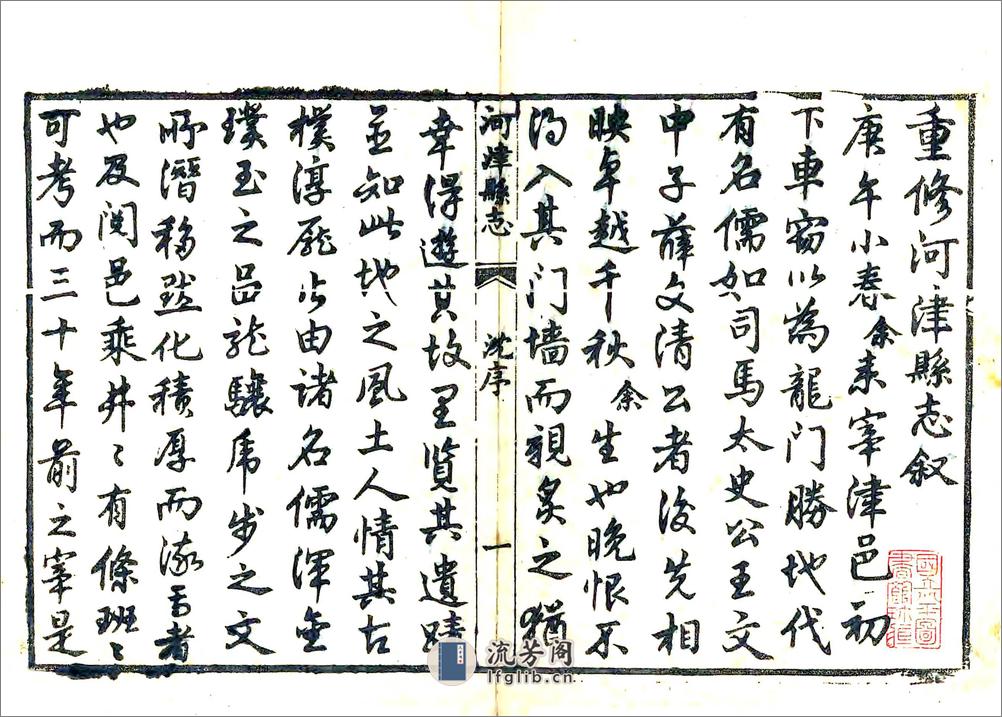 重修河津縣志叙
庚午小春余来宰津邑初
下車窃以為龍门勝地代
有名儒如司馬太史公王文
中子薛文清公者後先相
映卓越千秋余生也晚恨不
得入其门墙而親炙之猶
河津縣志 沈序 一
幸得遊其故里覽其遺蹟
並知此地之風土人情其古
樸淳龐皆由諸名儒渾金
璞玉之品龍驤虎步之文
所潛移默化積厚而流者
也及閱邑乘井〻有條班〻
可考而三十年前之宰是
流芳阁
lfglib.cn